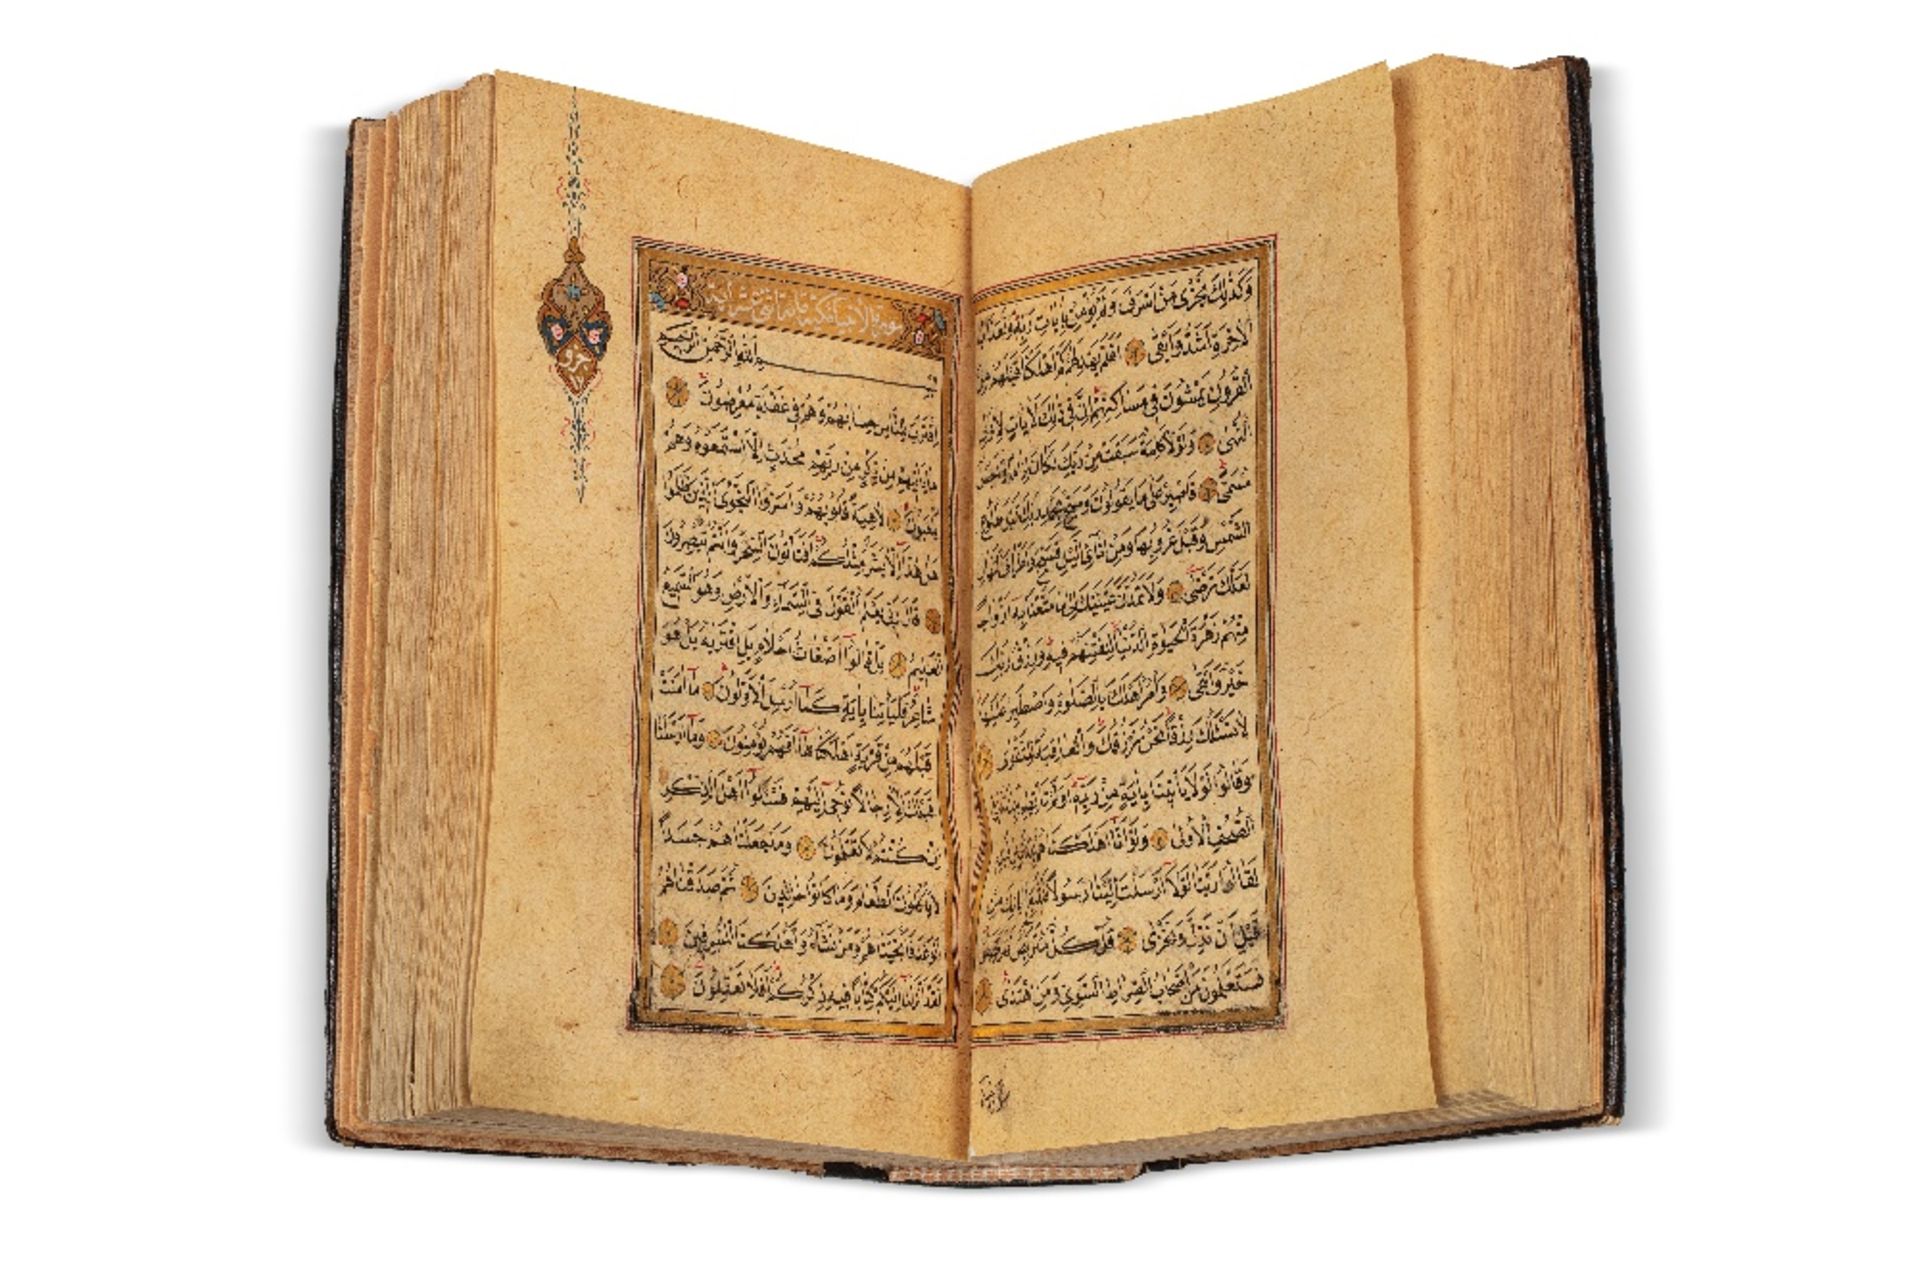 وَكَذَلِكَ نَجْزِى مَنْ اَسْرَفَ وَلَمْ يُؤْمِنْ بِاٰيَاتِ رَبِّهِ وَلَعَذَابُ
الْاٰخِرَةِ اَشَدُّ وَاَبْقَى اَفَلَمْ يَهْدِ لَهُمْ كَمْ اَهْلَكْنَا قَبْلَهُمْ مِنَ
الْقُرُونِ يَمْشُونَ فِى مَسَاكِنِهِمْ اِنَّ فِى ذَلِكَ لَاٰيَاتٍ لِاُولِى
النُّهَى وَلَوْلَا كَلِمَةٌ سَبَقَتْ مِنْ رَبِّكَ لَكَانَ لِزَامًا وَاَجَلٌ
مُسَمًّى فَاصْبِرْ عَلَى مَا يَقُولُونَ وَسَبِّحْ بِحَمْدِ رَبِّكَ قَبْلَ طُلُوعِ
الشَّمْسِ وَقَبْلَ غُرُوبِهَا وَمِنْ اٰنَاۤئِ الَّيْلِ فَسَبِّحْ وَاَطْرَافَ النَّهَارِ
لَعَلَّكَ تَرْضَى وَلَا تَمُدَّنَّ عَيْنَيْكَ اِلَى مَا مَتَّعْنَا بِهِ اَزْوَاجًا
مِنْهُمْ زَهْرَةَ الْحَيٰوةِ الدُّنْيَا لِنَفْتِنَهُمْ فِيهِ وَرِزْقُ رَبِّكَ
خَيْرٌ وَاَبْقَى وَأْمُرْ اَهْلَكَ بِالصَّلٰوةِ وَاصْطَبِرْ عَلَيْهَا
لَا نَسْئَلُكَ رِزْقًا نَحْنُ نَرْزُقُكَ وَالْعَاقِبَةُ لِلتَّقْوَى
وَقَالُوا لَوْلَا يَأْتِينَا بِاٰيَةٍ مِنْ رَبِّهِ اَوَلَمْ تَأْتِهِمْ بَيِّنَةُ مَا فِى
الصُّحُفِ الْاُولَى وَلَوْ اَنَّا اَهْلَكْنَاهُمْ بِعَذَابٍ مِنْ قَبْلِهِ
لَقَالُوا رَبَّنَا لَوْلَا اَرْسَلْتَ اِلَيْنَا رَسُولًا فَنَتَّبِعَ اٰيَاتِكَ مِنْ
قَبْلِ اَنْ نَذِلَّ وَنَخْزَى قُلْ كُلٌّ مُتَرَبِّصٌ فَتَرَبَّصُوا
فَسَتَعْلَمُونَ مَنْ اَصْحَابُ الصِّرَاطِ السَّوِيِّ وَمَنِ اهْتَدَى
سورة الانبياء مكية مائة اثنتى عشر اية
بسم الله الرحمن الرحيم
اِقْتَرَبَ لِلنَّاسِ حِسَابُهُمْ وَهُمْ فِى غَفْلَةٍ مُعْرِضُونَ
مَا يَأْتِيهِمْ مِنْ ذِكْرٍ مِنْ رَبِّهِمْ مُحْدَثٍ اِلَّا اسْتَمَعُوهُ وَهُمْ
يَلْعَبُونَ لَاهِيَةً قُلُوبُهُمْ وَاَسَرُّوا النَّجْوَى الَّذِينَ ظَلَمُوا
هَلْ هٰذَا اِلَّا بَشَرٌ مِثْلُكُمْ اَفَتَأْتُونَ السِّحْرَ وَاَنْتُمْ تُبْصِرُونَ
قَالَ رَبِّى يَعْلَمُ الْقَوْلَ فِى السَّمَاۤءِ وَالْاَرْضِ وَهُوَ السَّمِيعُ
الْعَلِيمُ بَلْ قَالُوا اَضْغَاثُ اَحْلَامٍ بَلِ افْتَرٰيهُ بَلْ هُوَ
شَاعِرٌ فَلْيَأْتِنَا بِاٰيَةٍ كَمَا اُرْسِلَ الْاَوَّلُونَ مَا اٰمَنَتْ
قَبْلَهُمْ مِنْ قَرْيَةٍ اَهْلَكْنَاهَا اَفَهُمْ يُؤْمِنُونَ وَمَا اَرْسَلْنَا
قَبْلَكَ اِلَّا رِجَالًا نُوحِى اِلَيْهِمْ فَسْئَلُوا اَهْلَ الذِّكْرِ
اِنْ كُنْتُمْ لَا تَعْلَمُونَ وَمَا جَعَلْنَاهُمْ جَسَدًا
لَا يَأْكُلُونَ الطَّعَامَ وَمَا كَانُوا خَالِدِينَ ثُمَّ صَدَقْنَاهُمُ
الْوَعْدَ فَاَنْجَيْنَاهُمْ وَمَنْ نَشَاۤءُ وَاَهْلَكْنَا الْمُسْرِفِينَ
لَقَدْ اَنْزَلْنَا اِلَيْكُمْ كِتَابًا فِيهِ ذِكْرُكُمْ اَفَلَا تَعْقِلُونَ
جزو
١٧